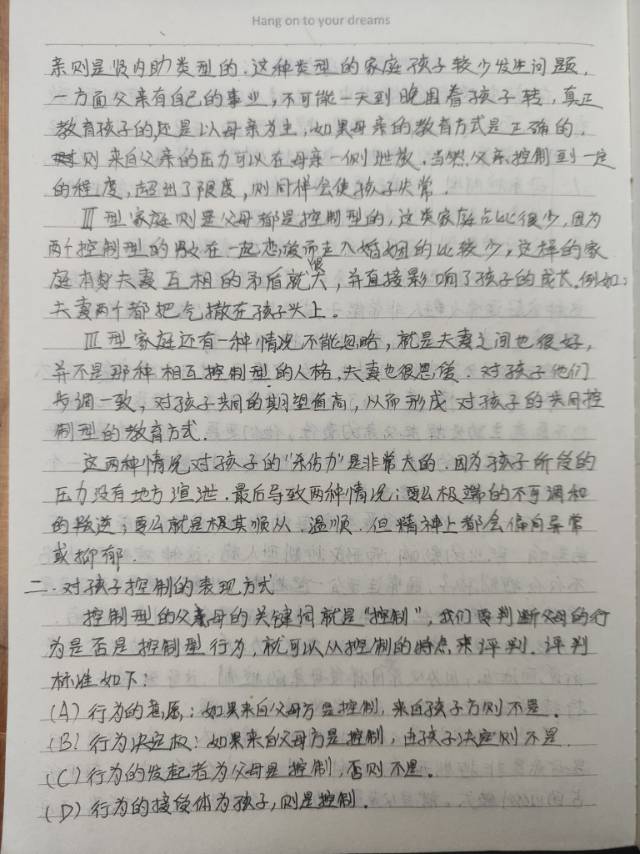 Hang on to your dreams
亲则是贤内助类型的.这种类型的家庭孩子较少发生问题,
一方面父亲有自己的事业,不可能一天到晚围着孩子转,真正
教育孩子的还是以母亲为主,如果母亲的教育方式是正确的.
则来自父亲的压力可以在母亲一侧泄放.当然父亲控制到一定
的程度,超出了限度,则同样会使孩子失常.
Ⅲ型家庭则是父母都是控制型的,这类家庭占比很少,因为
两个控制型的男女在一起恋爱而走入婚姻的比较少,这样的家
庭本身夫妻互相的矛盾就很大,并直接影响了孩子的成长.例如:
夫妻两个都把气撒在孩子头上。
Ⅲ型家庭还有一种情况不能忽略,就是夫妻之间也很好,
并不是那种相互控制型的人格,夫妻也很恩爱.对孩子他们
步调一致,对孩子共同的期望值高,从而形成对孩子的共同控
制型的教育方式.
这两种情况对孩子的"杀伤力"是非常大的.因为孩子所受的
压力没有地方渲泄.最后导致两种情况:要么极端的不可调和
的叛逆;要么就是极其顺从.温顺.但精神上都会偏向异常
或抑郁.
二.对孩子控制的表现方式
控制型的父母的关键词就是"控制",我们要判断父母的行
为是否是控制型行为,就可以从控制的特点来评判.评判
标准如下:
(A)行为的意愿:如果来自父母方是控制,来自孩子方则不是.
(B)行为决定权:如果来自父母方是控制,由孩子决定则不是.
(C)行为的发起者为父母是控制,否则不是.
(D)行为的接受体为孩子,则是控制.